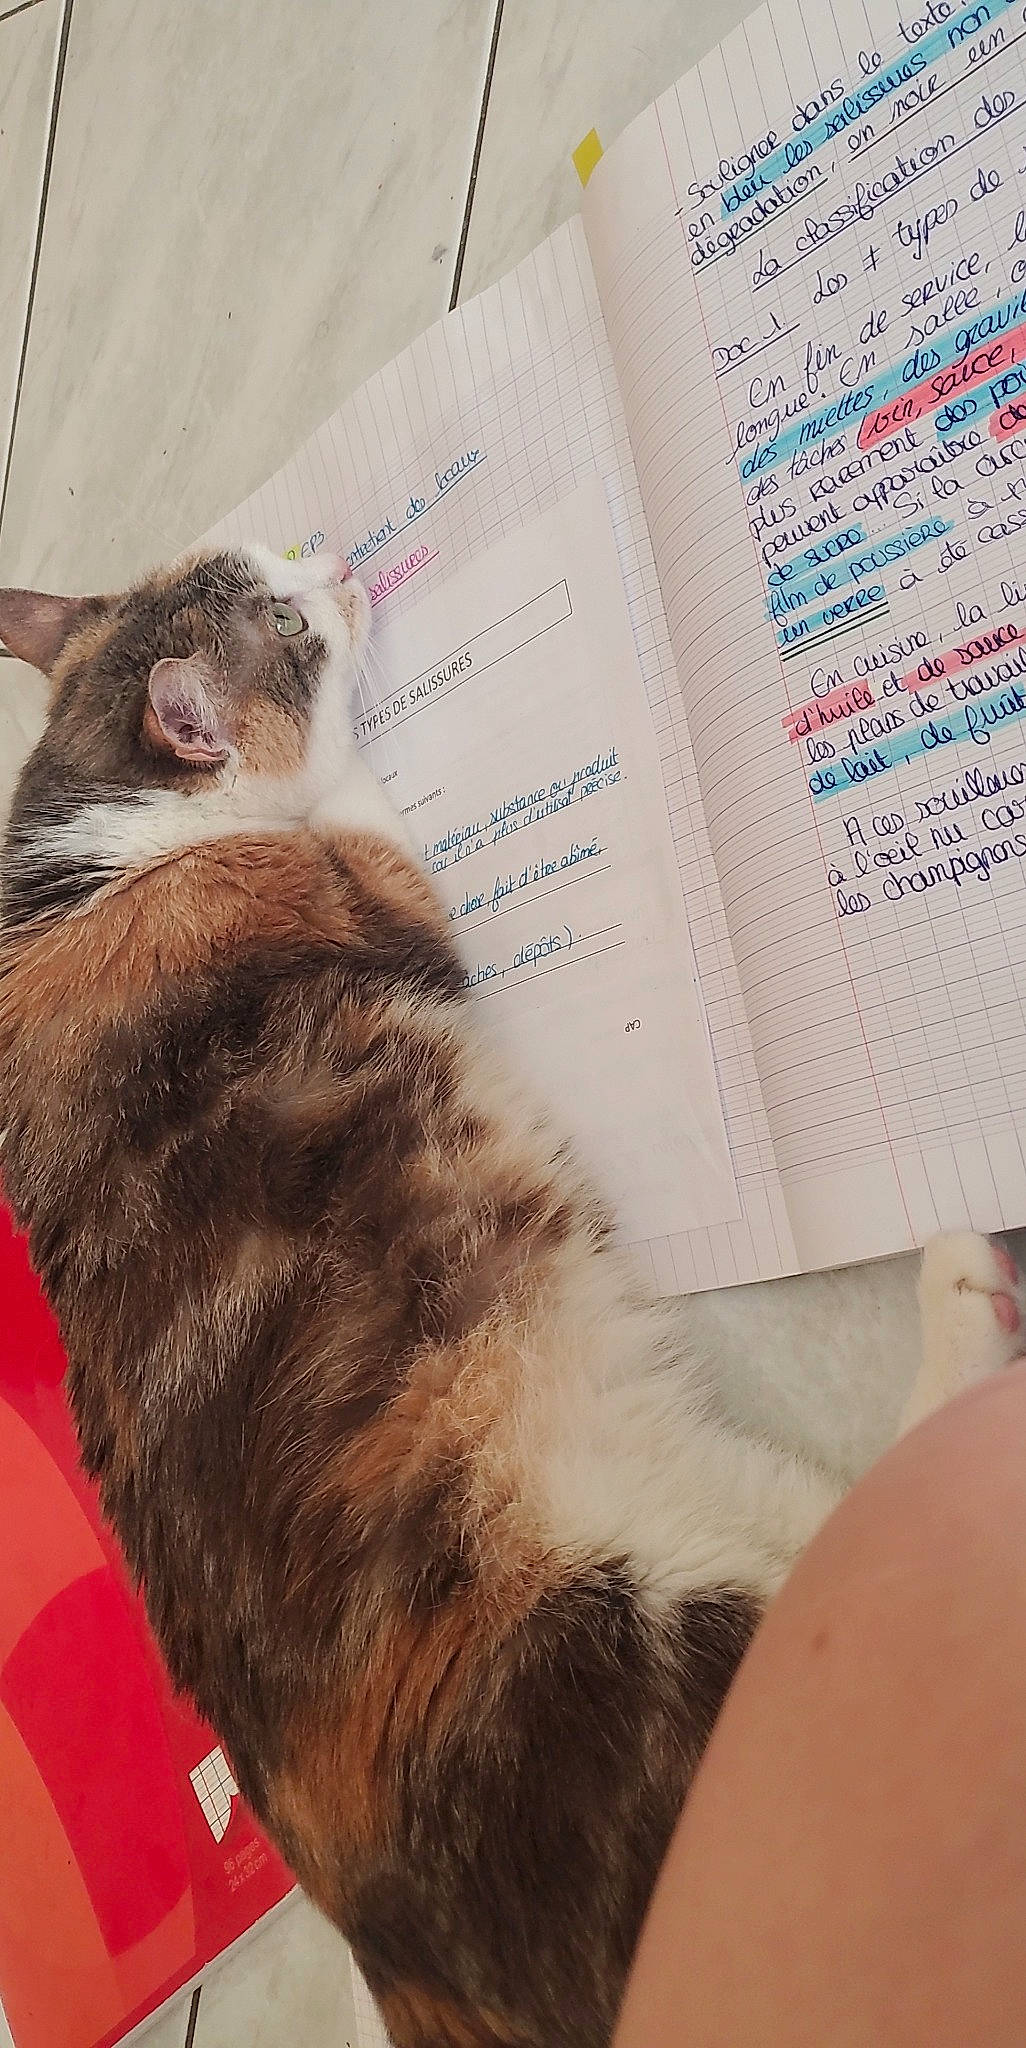 EP3
entretient des locaux
salissures
S TYPES DE SALISSURES
locaux
ermes suivants :
t matériau, substance ou produit
car il n'a plus d'utilisat° précise.
e chose fait d'être abîmé.
âches, dépôts).
CAP
- Souligner dans le texte.
en bleu les salissures non
dégradation, en noir un
La classification des
Les ≠ types de
Doc 1
En fin de service,
longue. En salle,
des miettes, des gravil
des tâches (vin, sauce,
plus rarement des
peuvent apparaître
de sucre... Si la
film de poussière à
un verre à été cass
En cuisine, la
d'huile et de sauce
les plans de travail
de lait, de fruit
A ces souillures
à l'oeil nu
les champignons
96 pages
24x32 cm